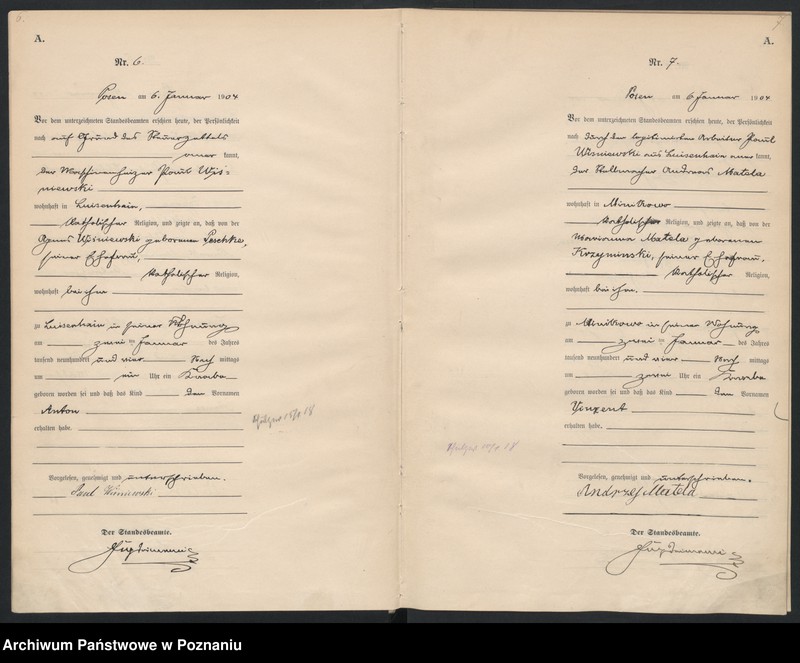 6.
A.
Nr. 6.
Posen am 6. Januar 1904
Vor dem unterzeichneten Standesbeamten erschien heute, der Persönlichkeit
nach auf Grund des Steuerzettels
kannt,
der Maschinenheizer Paul Wis=
niewski
wohnhaft in Luisenhain,
katholischer Religion, und zeigte an, daß von der
Agnes Wisniewski geborenen Peschke,
seiner Ehefrau,
katholischer Religion,
wohnhaft bei ihm
zu Luisenhain in seiner Wohnung
am zwei ten Januar des Jahres
tausend neunhundert und vier Nach mittags
um Uhr ein Knabe
geboren worden sei und daß das Kind den Vornamen
Anton
erhalten habe.
Vorgelesen, genehmigt und unterschrieben.
Paul Wisniewski
Der Standesbeamte.
7
A.
Nr. 7.
Posen am 6 Januar 1904
Vor dem unterzeichneten Standesbeamten erschien heute, der Persönlichkeit
nach durch den legitimirten Arbeiter Paul
Wisniewski aus Luisenhain kannt,
der Stellmacher Andreas Matela
wohnhaft in Minikowo
katholischer Religion, und zeigte an, daß von der
Marianna Matela geborenen
Krzyminski, seiner Ehefrau,
katholischer Religion,
wohnhaft bei ihm.
zu Minikowo in seiner Wohnung
am zwei ten Januar des Jahres
tausend neunhundert und vier Nach mittags
um zwei Uhr ein Knabe
geboren worden sei und daß das Kind den Vornamen
Vinzent
erhalten habe.
Vorgelesen, genehmigt und unterschrieben.
Andrzej Matela
Der Standesbeamte.
Archiwum Państwowe w Poznaniu